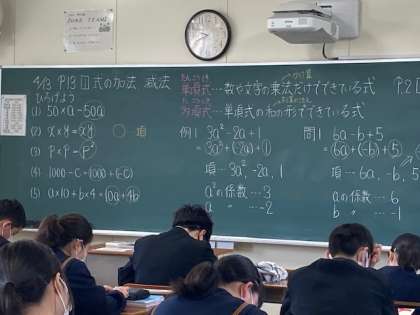 4/13 P.13 1 式の加法 減法
ひろげよう
(1) 50×a=50a
(2) x×y=xy
(3) P×P=P²
(4) 1000-C=1000+(-C)
(5) a×10+b×4=10a+4b
項
たんこうしき かけ算
単項式…数や文字の乗法だけでできている式
たこうしき
多項式…単項式の和の形でできている式
例1 3a²-2a+1
=3a²+(-2a)+1
項…3a²,-2a,1
a²の係数…3
a 〃 …-2
問1 6a-b+5
=6a+(-b)+5
項…6a,-b,5
aの係数…6
b 〃 …-1